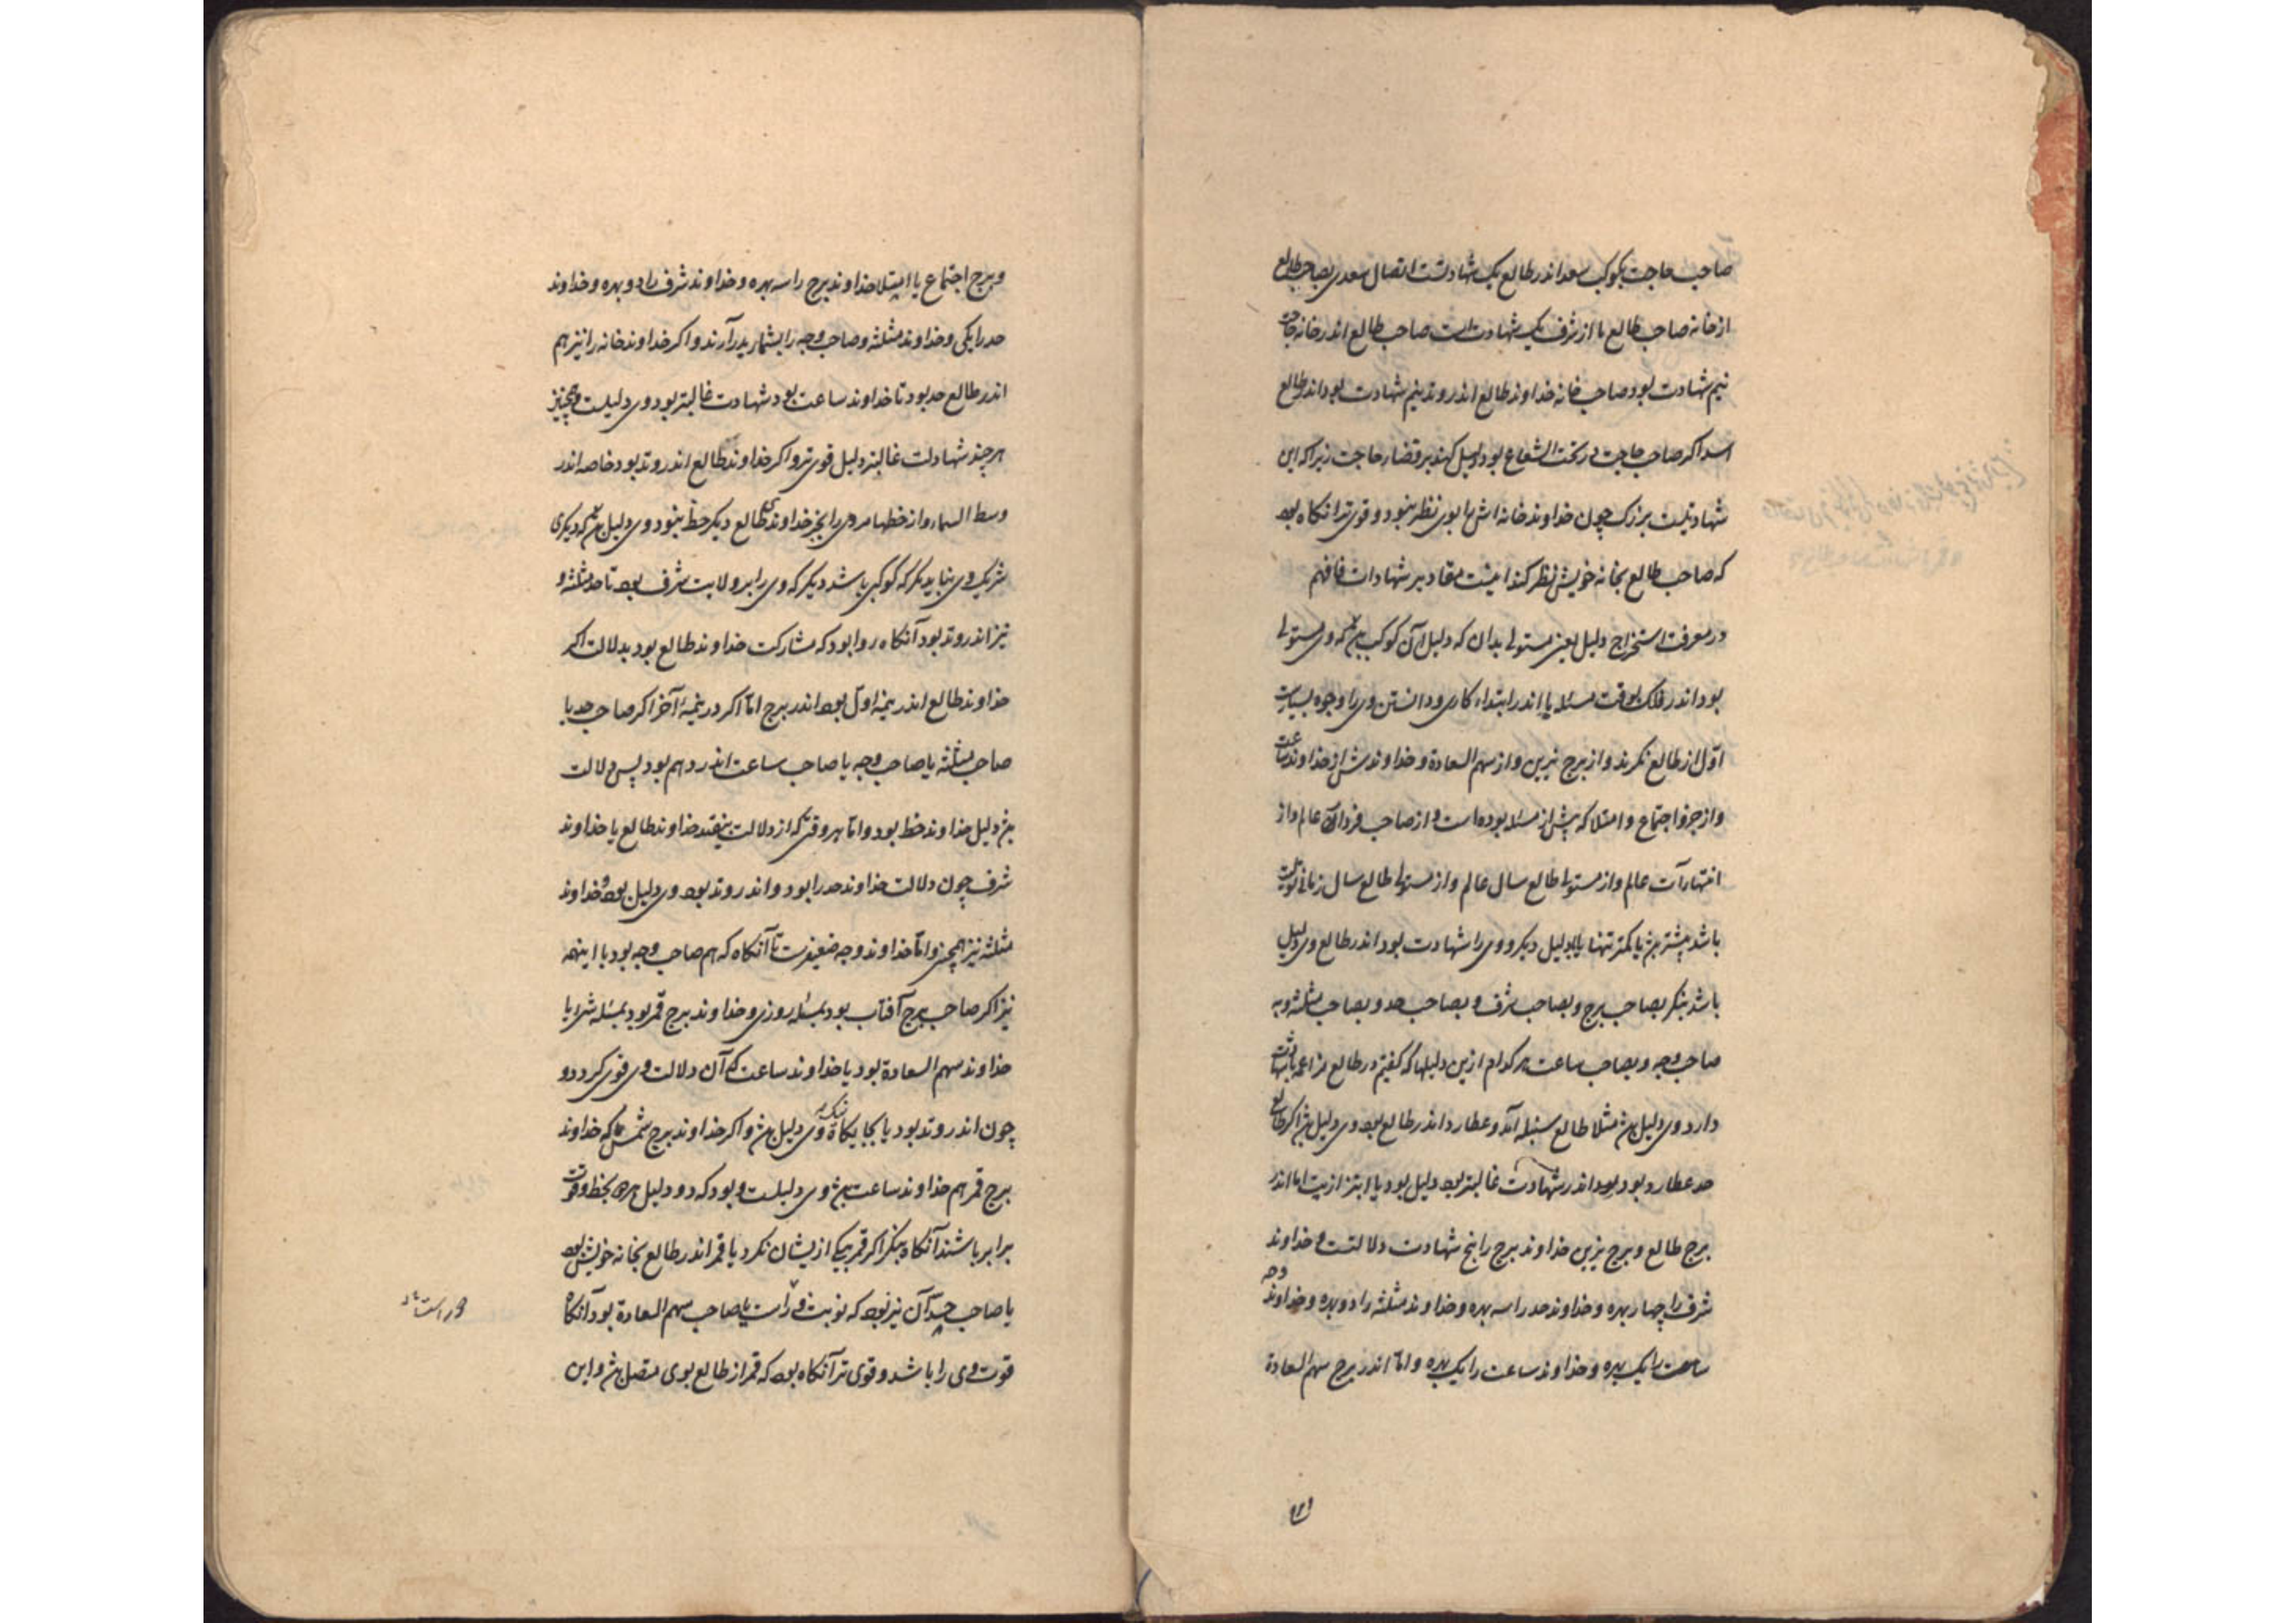 صاحب حاجت بکوکب سعد اندر طالع یک شهادتست اتصال سعدی بصاحب طالع
از خانه صاحب طالع یا از شرف یک شهادت است صاحب طالع اندر خانه حاجت
نیم شهادت بود صاحب خانه خداوند طالع اندر وتد نیم شهادت بود اندر طالع
اسد اکر صاحب حاجت تحت الشعاع بود دلیل کند بر قضاء حاجت زیرا که این
شهادتیست بزرک چون خداوند خانه اش را بوی نظر بنود و قوی تر آنکاه بود
که صاحب طالع بخانه خویش نظر کند اینست مقادیر شهادات فافهم
در معرفت استخراج دلیل یعنی مستولی بدان که دلیل آن کوکب باشد که وی مستولی
بود اندر فلک بوقت مسئله یا اندر ابتداء کاری و دانستن وی را وجوه بسیارست
اول از طالع نکرند و از برج نیرین و از سهم السعادة و خداوندش از خداوند ساعت
و از جزو اجتماع و امتلا که پیش از مسئله بوده است و از صاحب فردار عالم و از
انتهاآت عالم و از مستولی طالع سال عالم و از مستولی طالع سال
باشد بیشتر یا کمتر تنها یا بدلیل دیکر و وی را شهادت بود اندر طالع وی دلیل
باشد بنکر بصاحب برج و بصاحب شرف و بصاحب حد و بصاحب مثلثه و به
صاحب وجه و بصاحب ساعت هر کدام ازین دلیلها که کفتیم در طالع
دارد وی دلیل باشد مثلا طالع سنبله آمد و عطارد اندر طالع بود وی دلیل باشد اکر طالع
حد عطارد بود اندر شهادت غالبتر بود دلیل بود اما اندر
برج طالع و برج نیرین خداوند برج را پنج شهادت دلالتست و خداوند
شرف را چهار بهره و خداوند حد را سه بهره و خداوند مثلثه را دو بهره و خداوند وجه
را یک بهره و خداوند ساعت را یک بهره و اما اندر برج سهم السعادة
و برج اجتماع یا امتلا خداوند برج را سه بهره و خداوند شرف را دو بهره و خداوند
حد را یکی و خداوند مثلثه و صاحب وجه را بشمار در آرند و اکر خداوند خانه را نیز هم
اندر طالع حد بود تا خداوند ساعت بود شهادت غالبتر بود وی دلیلست و همچنین
هر چند شهادت غالبتر دلیل قوی تر و اکر خداوند طالع اندر وتد بود خاصه اندر
وسط السماء و از حظها مر وی را بجز خداوندی طالع دیکر حظ بنود وی دلیل باشد که دیکری
شریک وی نیاید مکر که کوکبی باشد دیکر که وی را بر ولایت شرف بود تا حد و مثلثه و
نیز اندر وتد بود آنکاه روا بود که مشارکت خداوند طالع بود بدلالت اکر
خداوند طالع اندر نیمه اول بود اندر برج اما اکر در نیمه آخر اکر صاحب حد یا
صاحب مثلثه یا صاحب وجه یا صاحب ساعت اندر دهم بود پس دلالت
باشد دلیل خداوند حظ بود و اما هر وقتی که از دلالت بیفتد خداوند طالع یا خداوند
شرف چون دلالت خداوند حد را بود و اندر وتد بود وی دلیل بود و خداوند
مثلثه نیز همچنین و اما خداوند وجه ضعیفست تا آنکاه که هم صاحب وجه بود با اینهمه
نیز اکر صاحب برج آفتاب بود بمسئله روزی و خداوند برج قمر بود بمسئله شبی یا
خداوند سهم السعادة بود یا خداوند ساعت که آن دلالت وی قوی کردد و
چون اندر وتد بود یا بجایکاه نیک وی دلیل باشد و اکر خداوند برج شمس یا که خداوند
برج قمر هم خداوند ساعت باشد وی دلیلست و بود که دو دلیل بحظ و قوت
برابر باشند آنکاه بنکر اکر قمر بیکی ازیشان نکرد یا قمر اندر طالع بخانه خویش بود
یا صاحب حد آن نیر بود که نوبت وی راست یا صاحب سهم السعادة بود آنکاه
قوت وی را باشد و قوی تر آنکاه بود که قمر از طالع بوی متصل باشد و این